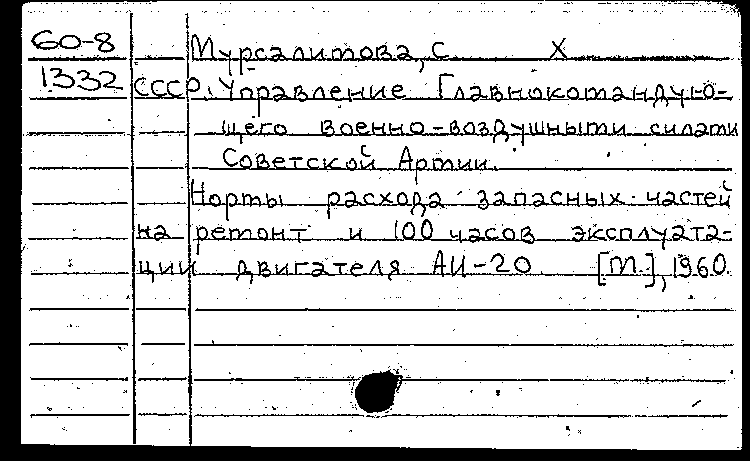 60-8
Мурсалимова, С. X
1332
СССР. Управление Главнокомандую-
щего военно-воздушными силами
Советской Армии.
Нормы расхода запасных частей
на ремонт и 100 часов эксплуата-
ции двигателя АИ-20 [М.], 1960